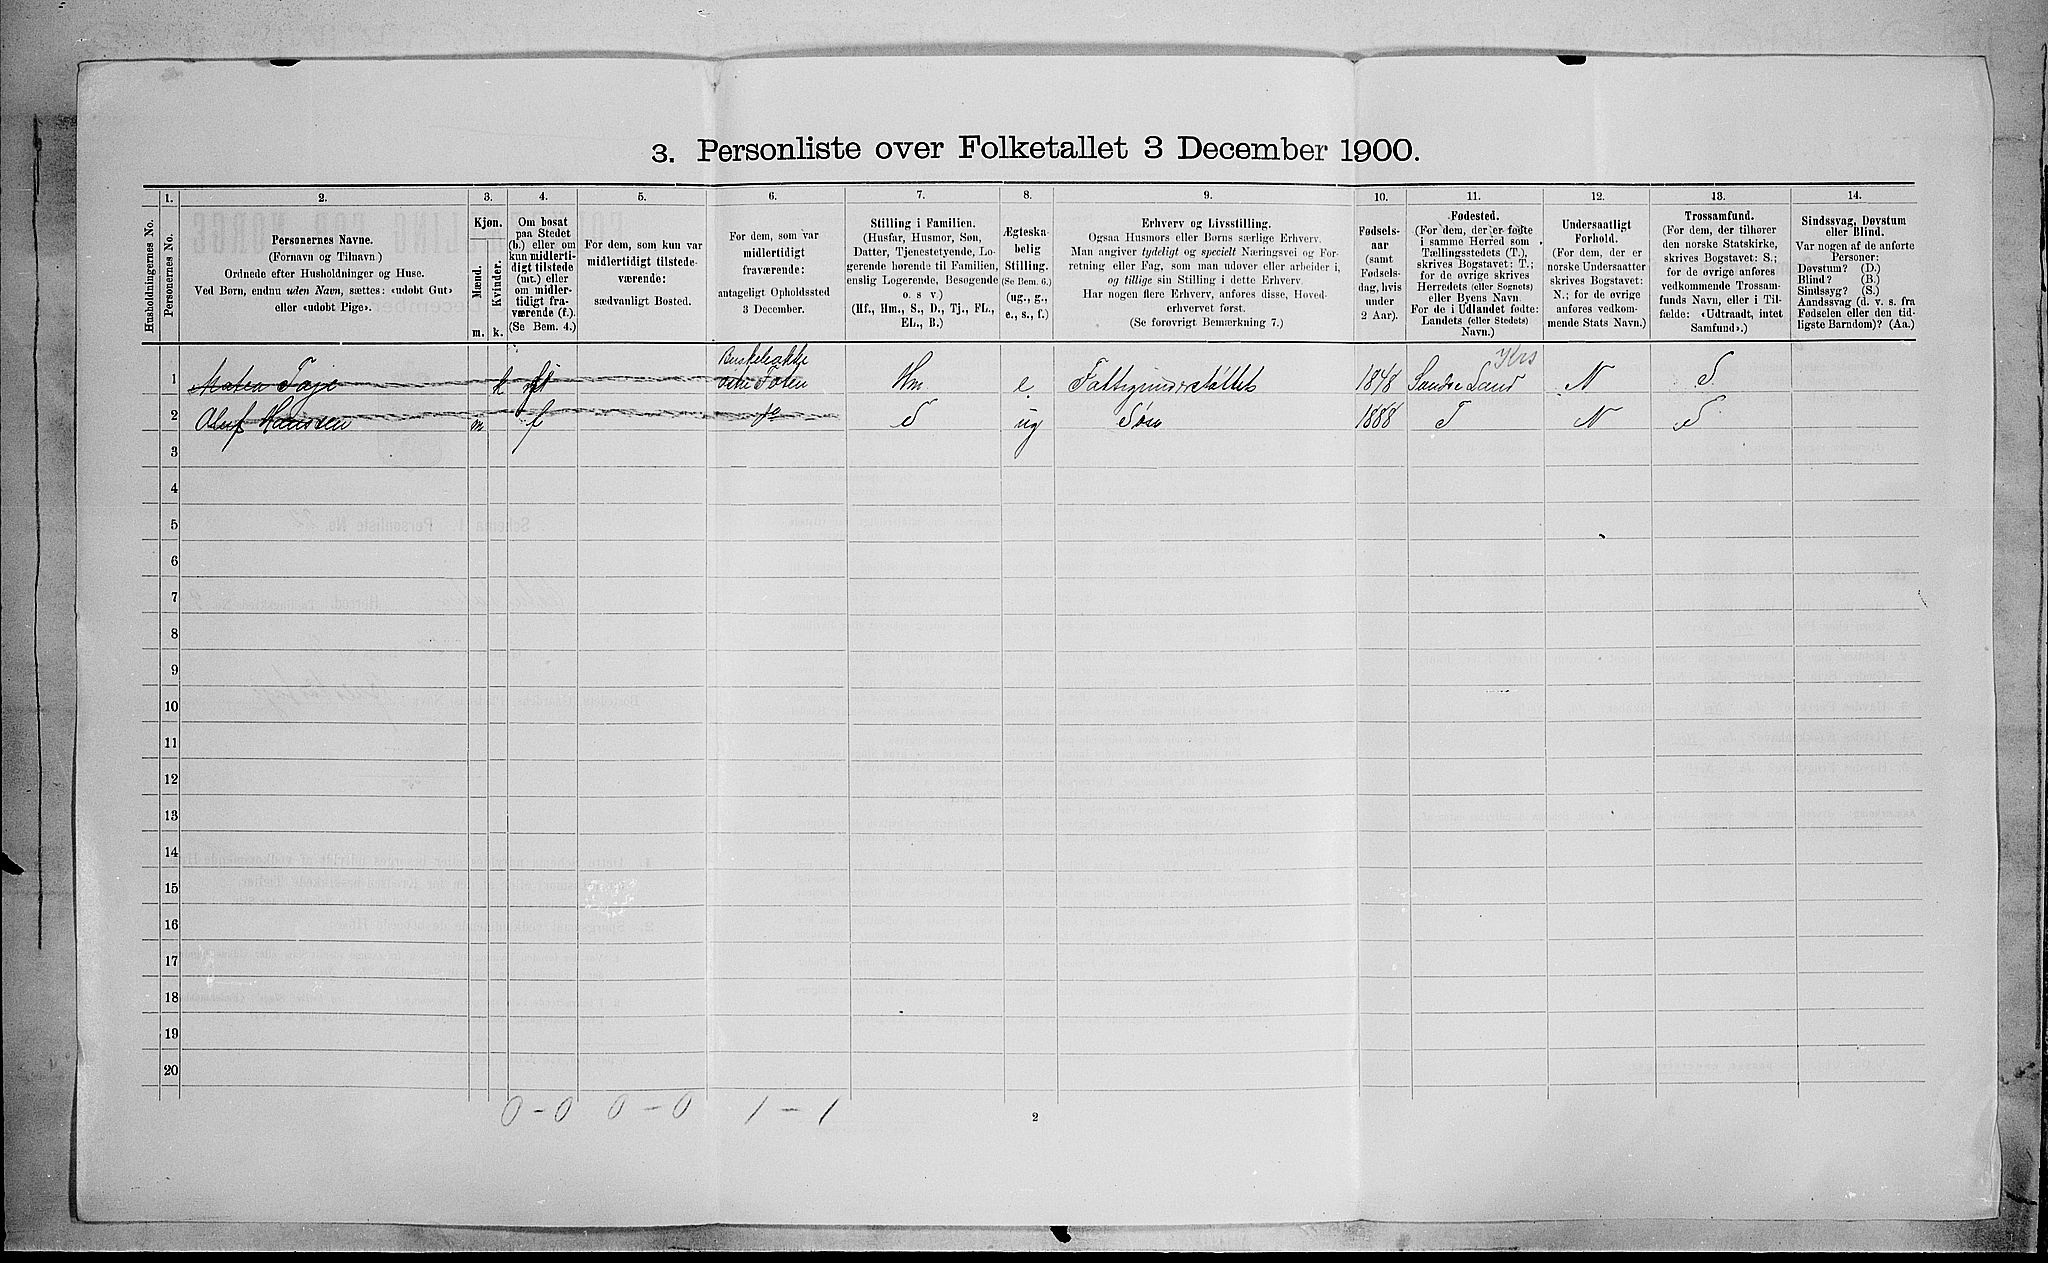 3. Personliste over Folketallet 3 December 1900.
1. 2. 3. 4. 5. 6. 7. 8. 9. 10. 11. 12. 13. 14.
Husholdningernes No.
Personernes No.
Personernes Navne.
(Fornavn og Tilnavn.)
Ordnede efter Husholdninger og Huse.
Ved Børn, endnu uden Navn, sættes: «udøbt Gut»
eller «udøbt Pige».
Kjøn.
Mænd.
Kvinder.
m. k.
Om bosat
paa Stedet
(b.) eller om
kun midler-
tidigt tilstede
(mt.) eller
om midler-
tidigt fra-
værende (f.).
(Se Bem. 4.)
For dem, som kun var
midlertidigt tilstede-
værende:
sædvanligt Bosted.
For dem, som var
midlertidigt
fraværende:
antageligt Opholdssted
3 December.
Stilling i Familien.
(Husfar, Husmor, Søn,
Datter, Tjenestetyende, Lo-
gerende hørende til Familien,
enslig Logerende, Besøgende
o. s. v.)
(Hf., Hm., S., D., Tj., FL.,
EL., B.)
Ægteska-
belig
Stilling.
(Se Bem. 6.)
(ug., g.,
e., s., f.)
Erhverv og Livsstilling.
Ogsaa Husmors eller Børns særlige Erhverv.
Man angiver tydeligt og specielt Næringsvei og For-
retning eller Fag, som man udøver eller arbeider i,
og tillige sin Stilling i dette Erhverv.
Har nogen flere Erhverv, anføres disse, Hoved-
erhvervet først.
(Se forøvrigt Bemærkning 7.)
Fødsels-
aar
(samt
Fødsels-
dag, hvis
under
2 Aar).
Fødested.
(For dem, der er fødte
i samme Herred som
Tællingsstedets (T.),
skrives Bogstavet: T.;
for de øvrige skrives
Herredets (eller Sognets)
eller Byens Navn.
For de i Udlandet fødte:
Landets (eller Stedets)
Navn.)
Undersaatligt
Forhold.
(For dem, der er
norske Undersaatter
skrives Bogstavet:
N.; for de øvrige
anføres vedkom-
mende Stats Navn.)
Trossamfund.
(For dem, der tilhører
den norske Statskirke,
skrives Bogstavet: S.;
for de øvrige anføres
vedkommende Trossam-
funds Navn, eller i Til-
fælde: «Udtraadt, intet
Samfund».)
Sindssvag, Døvstum
eller Blind.
Var nogen af de anførte
Personer:
Døvstum? (D.)
Blind? (B.)
Sindssyg? (S.)
Aandssvag (d. v. s. fra
Fødselen eller den tid-
ligste Barndom)? (Aa.)
Toten Krs
1 Maten k Hm e Fattigunderstøttet 1848 Søndre Land N S
2 Oluf Hansen m f do S ug Søn 1888 T N S
3
4
5
6
7
8
9
10
11
12
13
14
15
16
17
18
19
20
0 - 0 0 - 0 1 - 1
2